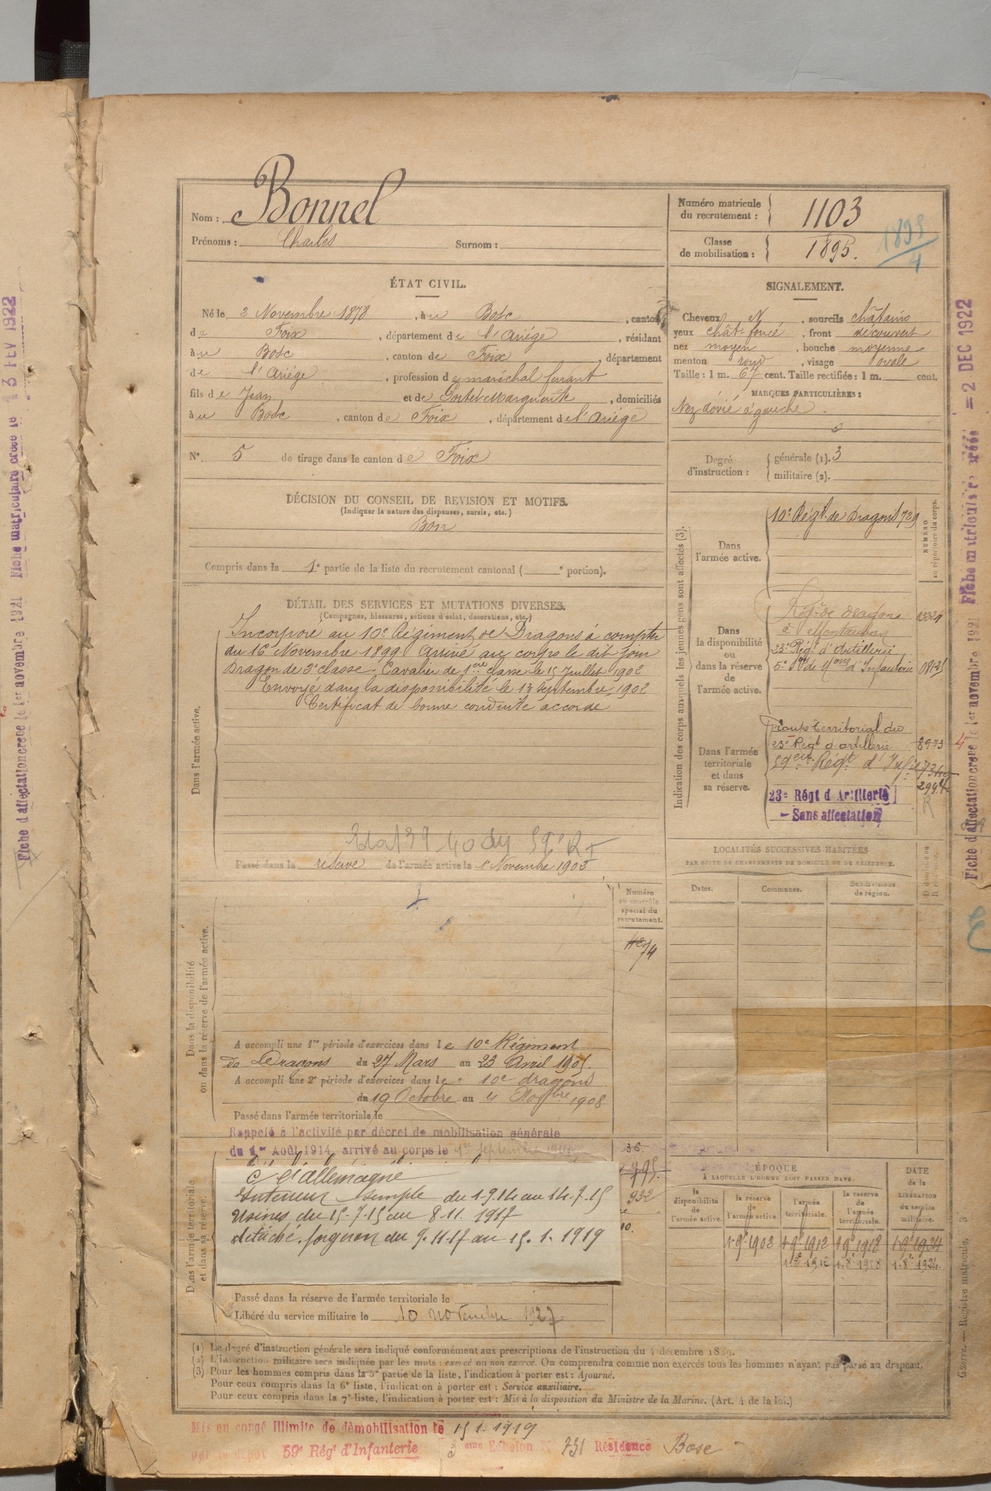 Nom : Bonnel
Prénoms : Charles Surnom :
Numéro matricule du recrutement : 1103
Classe de mobilisation : 1895.
ÉTAT CIVIL.
Né le 2 Novembre 1878, à Bosc, canton
de Foix, département de l'Ariège, résidant
à Bosc, canton de Foix, département
de l'Ariège, profession de maréchal ferrant
fils de Jean et de Marguerite, domiciliés
à Bosc, canton de Foix, département de l'Ariège
N° 5 de tirage dans le canton de Foix
SIGNALEMENT.
Cheveux N, sourcils châtains
yeux chât. foncé, front découvert
nez moyen, bouche moyenne
menton rond, visage ovale
Taille : 1 m. 67 cent. Taille rectifiée : 1 m. cent.
MARQUES PARTICULIÈRES :
Nez dévié à gauche.
Degré d'instruction : générale (1). 3
militaire (2).
DÉCISION DU CONSEIL DE REVISION ET MOTIFS.
(Indiquer la nature des dispenses, sursis, etc.)
Bon
Compris dans la 1e partie de la liste du recrutement cantonal ( e portion).
DÉTAIL DES SERVICES ET MUTATIONS DIVERSES.
(Campagnes, blessures, actions d'éclat, décorations, etc.)
Dans l'armée active.
Incorporé au 10e Régiment de Dragons à compter
du 16 Novembre 1899. Arrivé au corps le dit jour
Dragon de 2e classe. Cavalier de 1ère classe le 15 Juillet 1902
Envoyé dans la disponibilité le 13 Septembre 1902
Certificat de bonne conduite accordé
Passé dans la réserve de l'armée active le 1 Novembre 1903
Indication des corps auxquels les jeunes gens sont affectés (3).
Dans l'armée active.
10e Régt de Dragons 729
NUMÉRO au répertoire du corps.
Dans la disponibilité ou dans la réserve de l'armée active.
dragons
à Montauban
23e Régt d'Artillerie
Dans l'armée territoriale et dans sa réserve.
territorial du
23e Régt d'artillerie
59e Régt d'Inf
23e Régt d'Artillerie
- Sans affectation
LOCALITÉS SUCCESSIVES HABITÉES
PAR SUITE DE CHANGEMENTS DE DOMICILE OU DE RÉSIDENCE.
Dates. Communes. Subdivisions de région.
Numéro au contrôle spécial du recrutement.
Dans la disponibilité ou dans la réserve de l'armée active.
A accompli une 1re période d'exercices dans le 10e Régiment
de Dragons du 27 Mars au 23 Avril 1905.
A accompli une 2e période d'exercices dans le 10e dragons
du 19 Octobre au 4 Novbre 1908
Passé dans l'armée territoriale le
Rappelé à l'activité par décret de mobilisation générale
du 1er Août 1914, arrivé au corps le
Dans l'armée territoriale et dans sa réserve.
C. l'Allemagne
Intérieur simple du 1.9.14 au 14.7.15
Usines du 15.7.15 au 8.11.1917
détaché forgeron du 9.11.17 au 15.1.1919
Passé dans la réserve de l'armée territoriale le
Libéré du service militaire le 10 novembre 1927
ÉPOQUE
À LAQUELLE L'HOMME DOIT PASSER DANS:
la disponibilité de l'armée active. la réserve de l'armée active. l'armée territoriale. la réserve de l'armée territoriale.
DATE de la LIBÉRATION du service militaire.
(1) Le degré d'instruction générale sera indiqué conformément aux prescriptions de l'instruction du 4 décembre 1889.
(2) L'instruction militaire sera indiquée par les mots : exercé ou non exercé. On comprendra comme non exercés tous les hommes n'ayant pas passé au drapeau.
(3) Pour les hommes compris dans la 5e partie de la liste, l'indication à porter est : Ajourné.
Pour ceux compris dans la 6e liste, l'indication à porter est : Service auxiliaire.
Pour ceux compris dans la 7e liste, l'indication à porter est : Mis à la disposition du Ministre de la Marine. (Art. 4 de la loi.)
Mis en congé illimité de démobilisation le 15.1.1919
par le dépôt 59e Régt d'Infanterie 3 ème Echelon N° 731 Résidence Bosc
Fiche d'affectation créée le 1er novembre 1921 Fiche matriculaire créée le = 2 DEC 1922
Fiche d'affectation créée le 1er novembre 1921 Fiche matriculaire créée le 13 FEV 1922